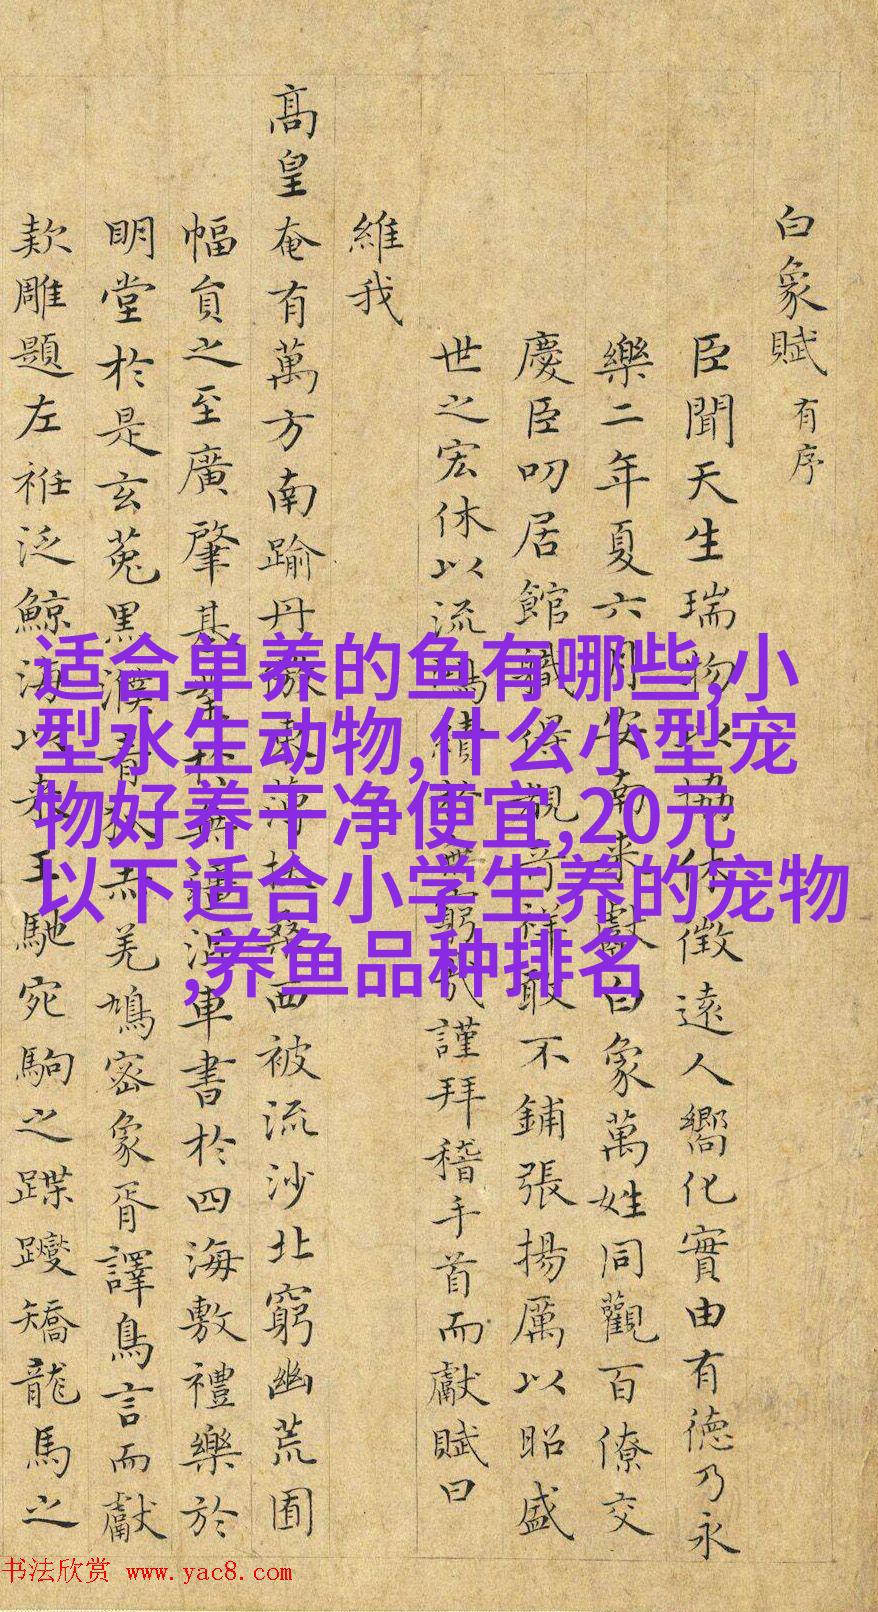 白象賦 有序
臣聞天生瑞物以協休徵遠人嚮化實由有德乃永
樂二年夏六月安南來獻白象萬姓同觀百僚交
慶臣叨居館職得觀奇祥敢不鋪張揚厲以昭盛
世之宏休以流鴻績於無窮哉謹拜稽手首而獻賦曰
維我
高皇奄有萬方南踰丹
薄扶桑西被流沙北窮幽荒圉
幅員之至廣肇基
混車書於四海敷禮樂於
明堂於是玄菟黑濮青
羌鳩密象胥譯鳥言而獻
款雕題左衽泛鯨海以來王馳宛駒之蹀躞矯龍馬之
适合单养的鱼有哪些,小
型水生动物,什么小型宠
物好养干净便宜,20元
以下适合小学生养的宠物
,养鱼品种排名
书法欣赏 www.yac8.com